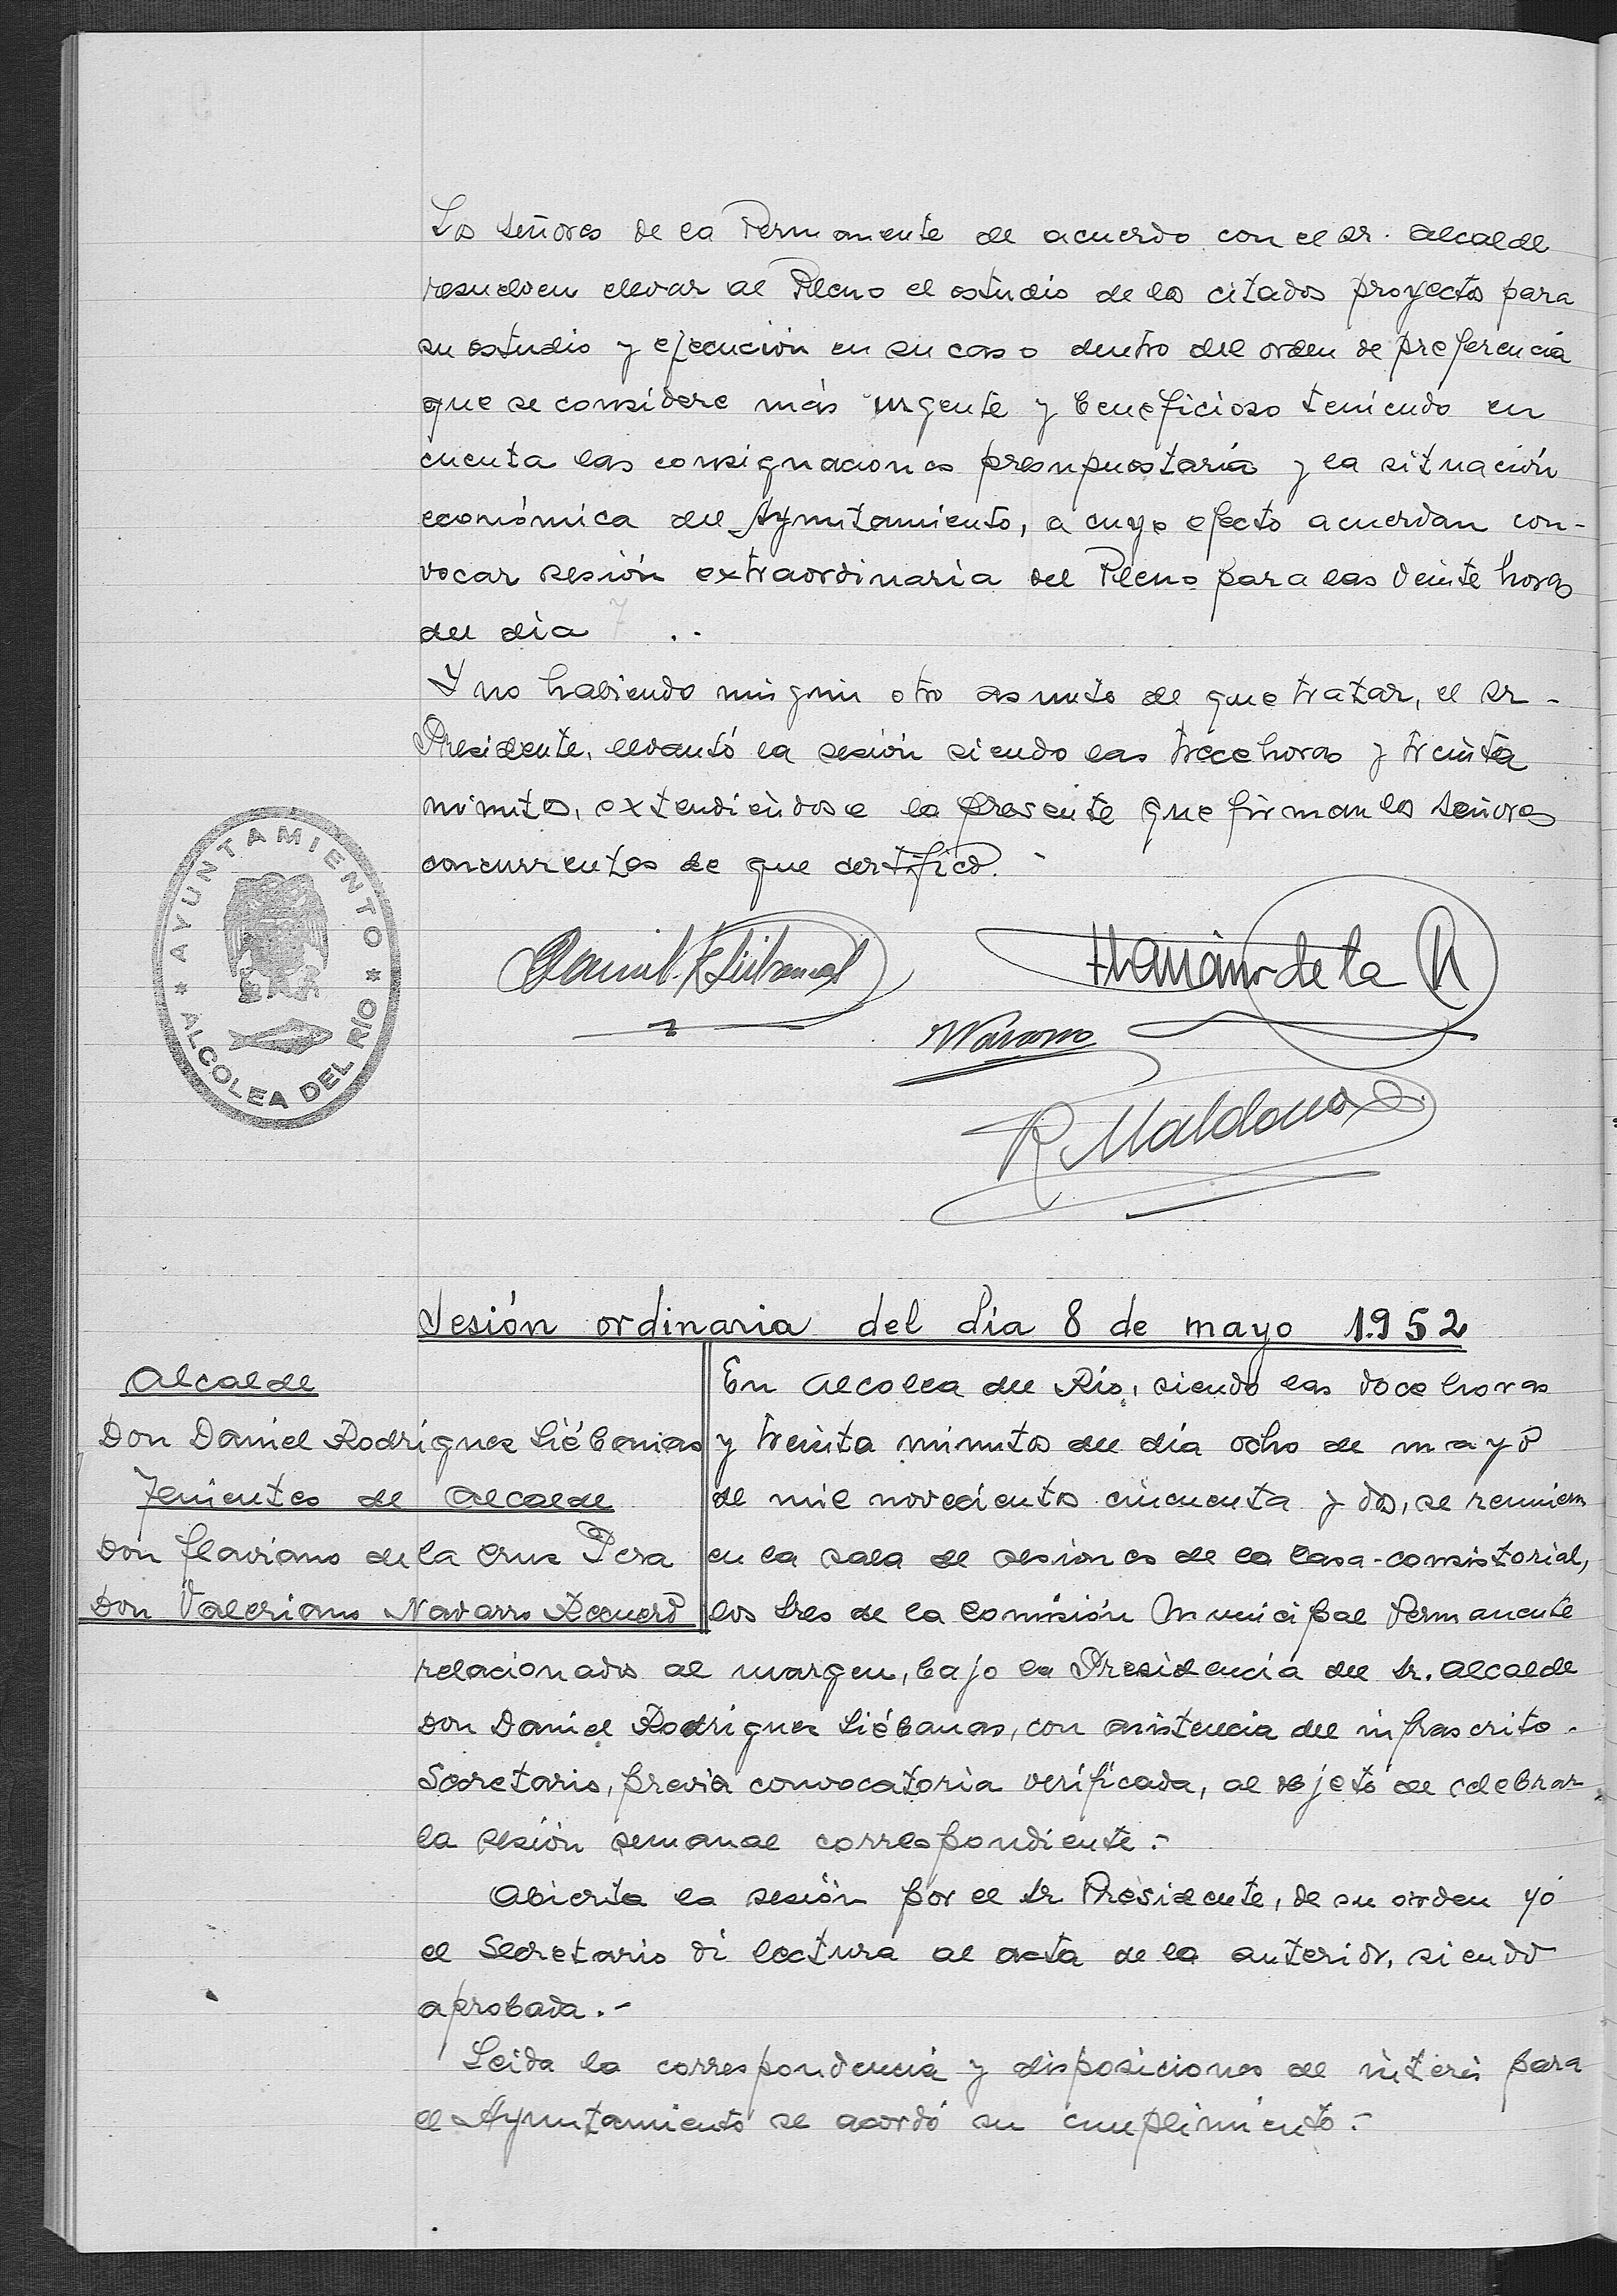 Los señores de la Permanente de acuerdo con el Sr. Alcalde
resuelven elevar al Pleno el estudio de los citados proyectos para
su estudio y ejecución en su caso dentro del orden de preferencia
que se considere más urgente y beneficioso teniendo en
cuenta las consignaciones presupuestaria y la situación
económica del Ayuntamiento, a cuyo efecto acuerdan con-
vocar sesión extraordinaria del Pleno para las veinte horas
del día 7 ..
Y no habiendo ningún otro asunto de que tratar, el Sr.
Presidente, levantó la sesión siendo las trece horas y treinta
minutos, extendiéndose la presente que firman los señores
concurrentes de que certifico.-
AYUNTAMIENTO
* ALCOLEA DEL RIO *
Daniel R Liébanas
Flaviano de la
Navarro
R Maldonado
Sesión ordinaria del día 8 de mayo 1.952
Alcalde
Don Daniel Rodríguez Liébanas
Tenientes de Alcalde
Don Flaviano de la Cruz Pera
Don Valeriano Navarro Recuero
En Alcolea del Río, siendo las doce horas
y treinta minutos del día ocho de mayo
de mil novecientos cincuenta y dos, se reunieron
en la sala de sesiones de la Casa-consistorial,
los Sres de la Comisión Municipal Permanente
relacionados al margen, bajo la Presidencia del Sr. Alcalde
Don Daniel Rodríguez Liébanas, con asistencia del infrascrito
Secretario, previa convocatoria verificada, al objeto de celebrar
la sesión semanal correspondiente.-
Abierta la sesión por el Sr Presidente, de su orden yo
el Secretario di lectura al acta de la anterior, siendo
aprobada.-
Leida la correspondencia y disposiciones de interés para
el Ayuntamiento se acordó su cumplimiento.-